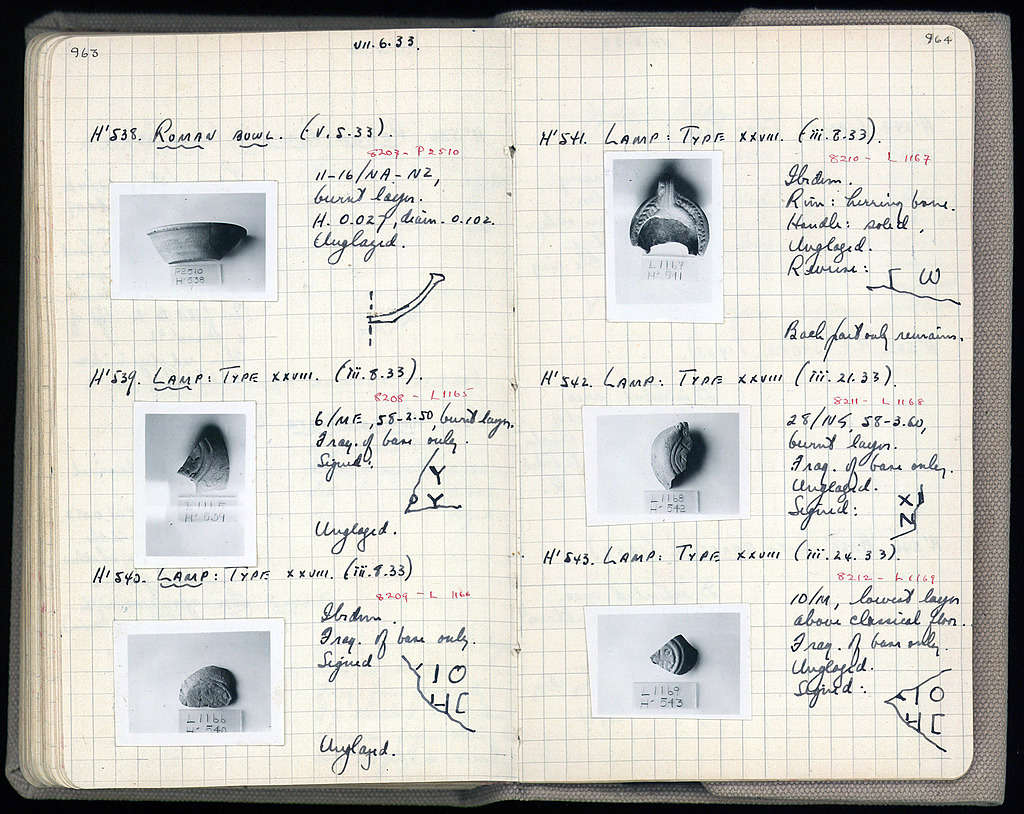 963
VII.6.33.
H'538. ROMAN BOWL. (V.5.33).
8207 - P 2510
11-16/NA-NZ,
burnt layer.
H. 0.027, diam. 0.102.
Unglazed.
P2510
H'538
H'539. LAMP: TYPE XXVIII. (iii.8.33).
8208 - L 1165
6/ME, 58-2.50, burnt layer.
Frag. of base only.
Signed:
Y
P Y
Unglazed.
L1165
H'539
H'540. LAMP: TYPE XXVIII. (iii.8.33)
8209 - L 1166
Ibidem.
Frag. of base only.
Signed
IO
HC
Unglazed.
L1166
H'540
964
H'541. LAMP: TYPE XXVIII. (iii.8.33).
8210 - L 1167
Ibidem.
Rim: herring bone.
Handle: solid.
Unglazed.
Reverse:
Γ W
Back part only remains.
L1167
H'541
H'542. LAMP: TYPE XXVIII (iii.21.33).
8211 - L 1168
28/NS, 58-3.60,
burnt layer.
Frag. of base only.
Unglazed.
Signed:
L1168
H'542
H'543. LAMP: TYPE XXVIII (iii.24.33).
8212 - L 1169
10/M, lowest layer
above classical floor.
Frag. of base only.
Unglazed.
Signed:
IO
HC
L1169
H'543